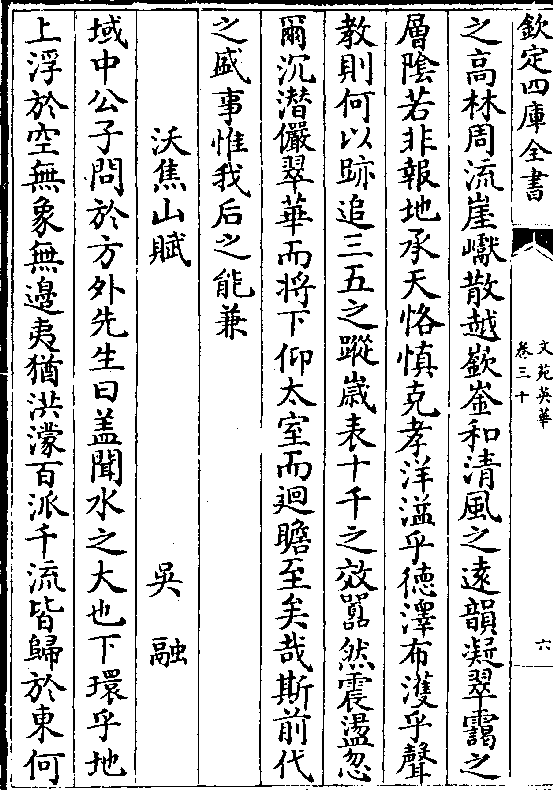 欽定四庫全書
文苑英華
卷三十
六
之高林周流崖巘散越嶔崟和清風之遠韻凝翠靄之
層陰若非報地承天恪慎克孝洋溢乎德澤布濩乎聲
教則何以跡追三五之蹤嵗表十千之效嚣然震盪忽
爾沉潜儼翠華而将下仰太室而迴瞻至矣哉斯前代
之盛事惟我后之能兼
沃焦山賦 吳融
域中公子問於方外先生曰盖聞水之大也下環乎地
上浮於空無象無邉夷猶洪濛百派千流皆歸於東何